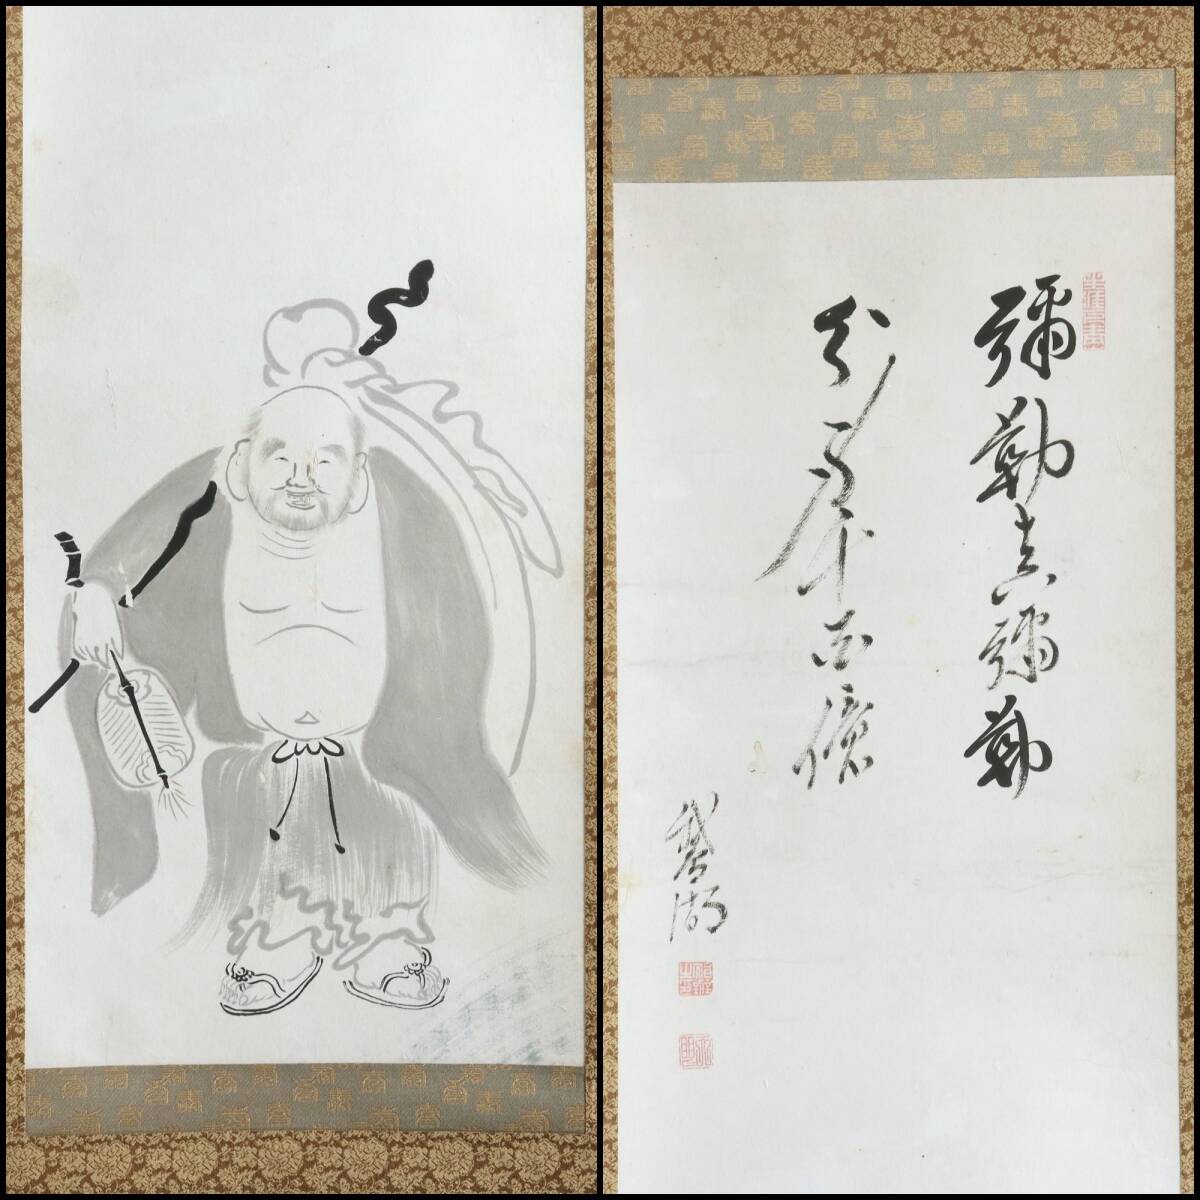 彌勒真彌勒
分身千百億
鵞湖